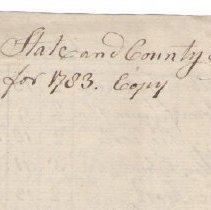 State and County
for 1783. Copy